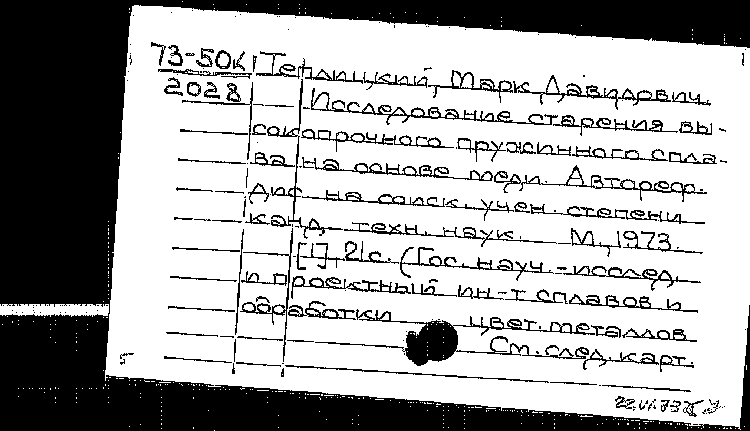 73-50к Теплицкий, Марк Давидович.
2028 Исследование старения вы-
сокопрочного пружинного спла-
ва на основе меди. Автореф.
дис. на соиск. учен. степени
канд. техн. наук. М., 1973.
[1], 21 с. (Гос. науч.-исслед.
и проектный ин-т сплавов и
обработки цвет. металлов
См. след. карт.
5
22.VI.73